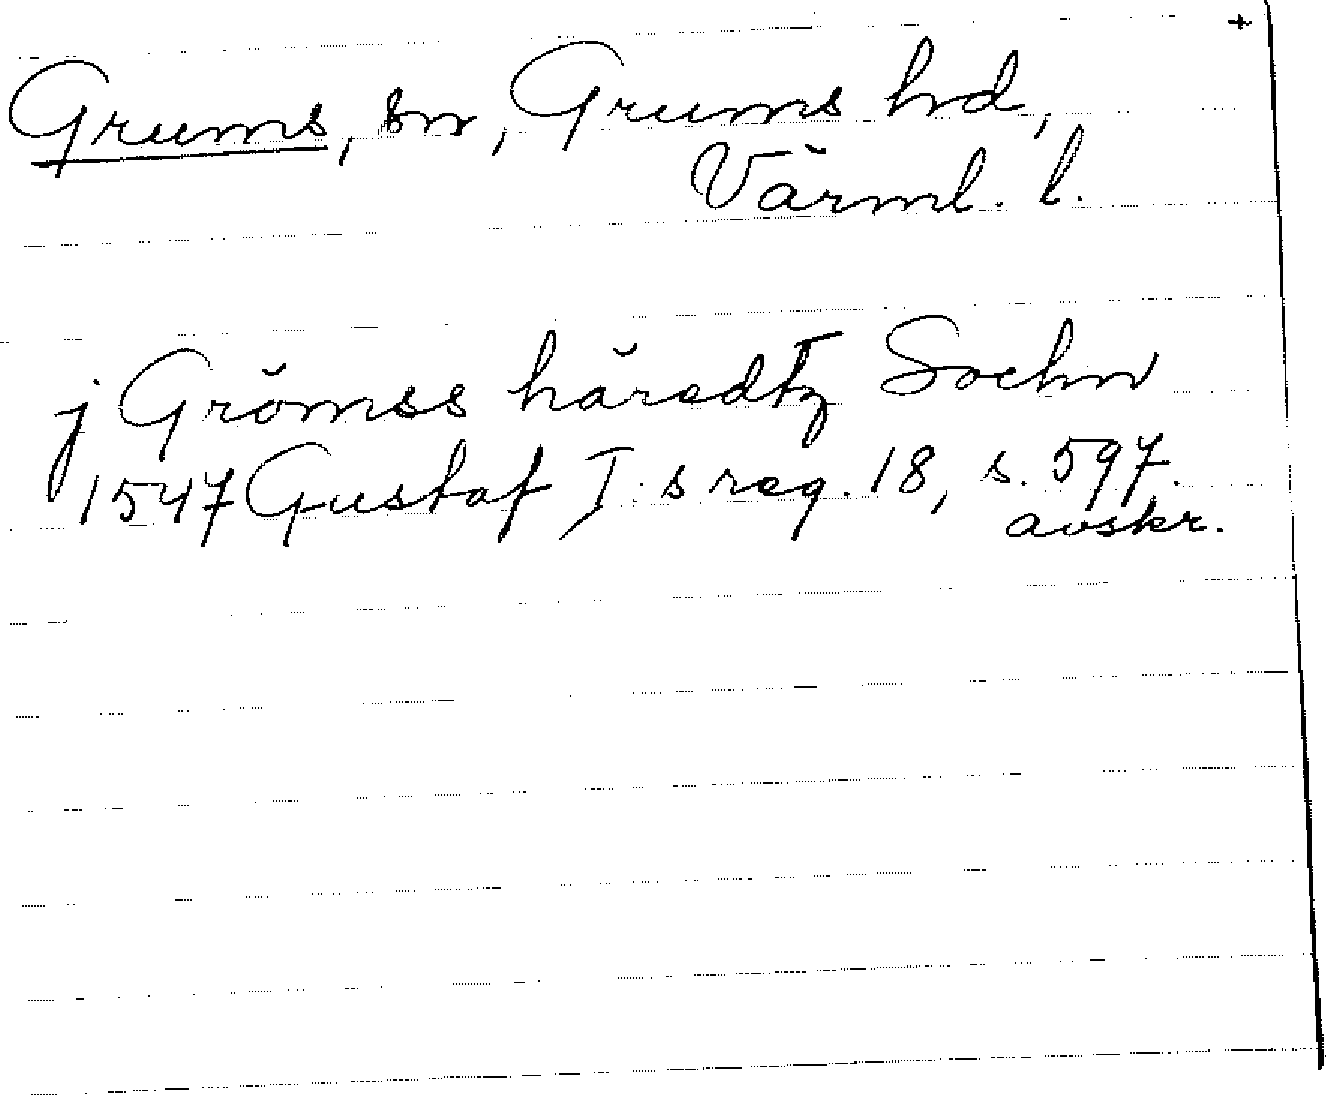 +
Grums, sn, Grums hd,
Värml. l.
j Grömss häredtz Sochn
1547 Gustaf I:s reg. 18, s. 597.
avskr.